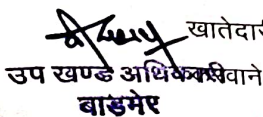 खातेदारी
उप खण्ड अधिकारी वाने
बाडमेर